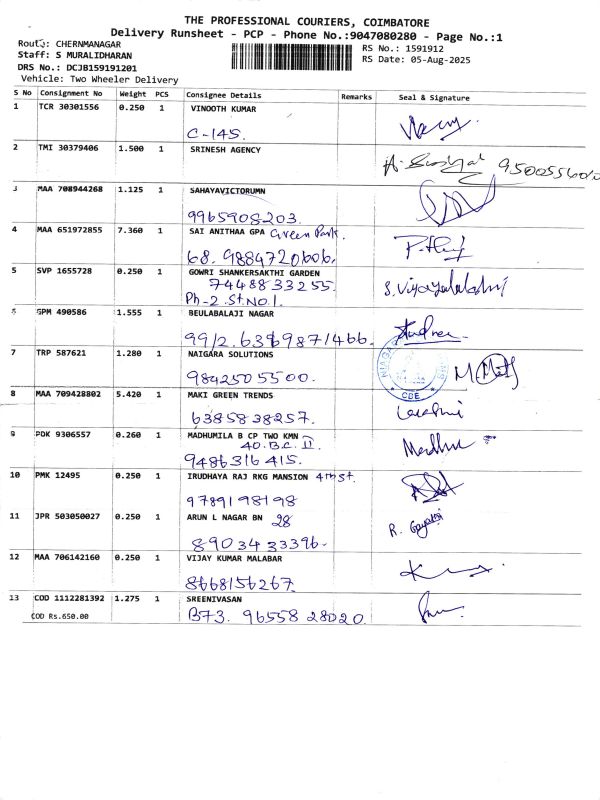 THE PROFESSIONAL COURIERS, COIMBATORE
Delivery Runsheet - PCP - Phone No.:9047080280 - Page No.:1
Route: CHERNMANAGAR
RS No.: 1591912
Staff: S MURALIDHARAN
RS Date: 05-Aug-2025
DRS No.: DCJB159191201
Vehicle: Two Wheeler Delivery
S No Consignment No Weight PCS Consignee Details Remarks Seal & Signature
1 TCR 30301556 0.250 1 VINOOTH KUMAR
C-145.
2 TMI 30379406 1.500 1 SRINESH AGENCY
3 MAA 708944268 1.125 1 SAHAYAVICTORUMN
9965908203.
4 MAA 651972855 7.360 1 SAI ANITHAA GPA Green Park.
68. 9884720606.
5 SVP 1655728 0.250 1 GOWRI SHANKERSAKTHI GARDEN
7448833255
Ph-2. St.No1. S. Vijayalakshmi
6 GPM 490586 1.555 1 BEULABALAJI NAGAR
99/2. 6369871466.
7 TRP 587621 1.280 1 NAIGARA SOLUTIONS
9842505500.
CBE
8 MAA 709428802 5.420 1 MAKI GREEN TRENDS
6385838257.
9 PDK 9306557 0.260 1 MADHUMILA B CP TWO KMN
40. B.C. II Madhu
9486316415.
10 PMK 12495 0.250 1 IRUDHAYA RAJ RKG MANSION 4th St.
9789198198
11 JPR 503050027 0.250 1 ARUN L NAGAR BN 28
R. Gayathri
8903433396-
12 MAA 706142160 0.250 1 VIJAY KUMAR MALABAR
8668156267
13 COD 1112281392 1.275 1 SREENIVASAN
COD Rs.650.00 B73. 96558 28020.